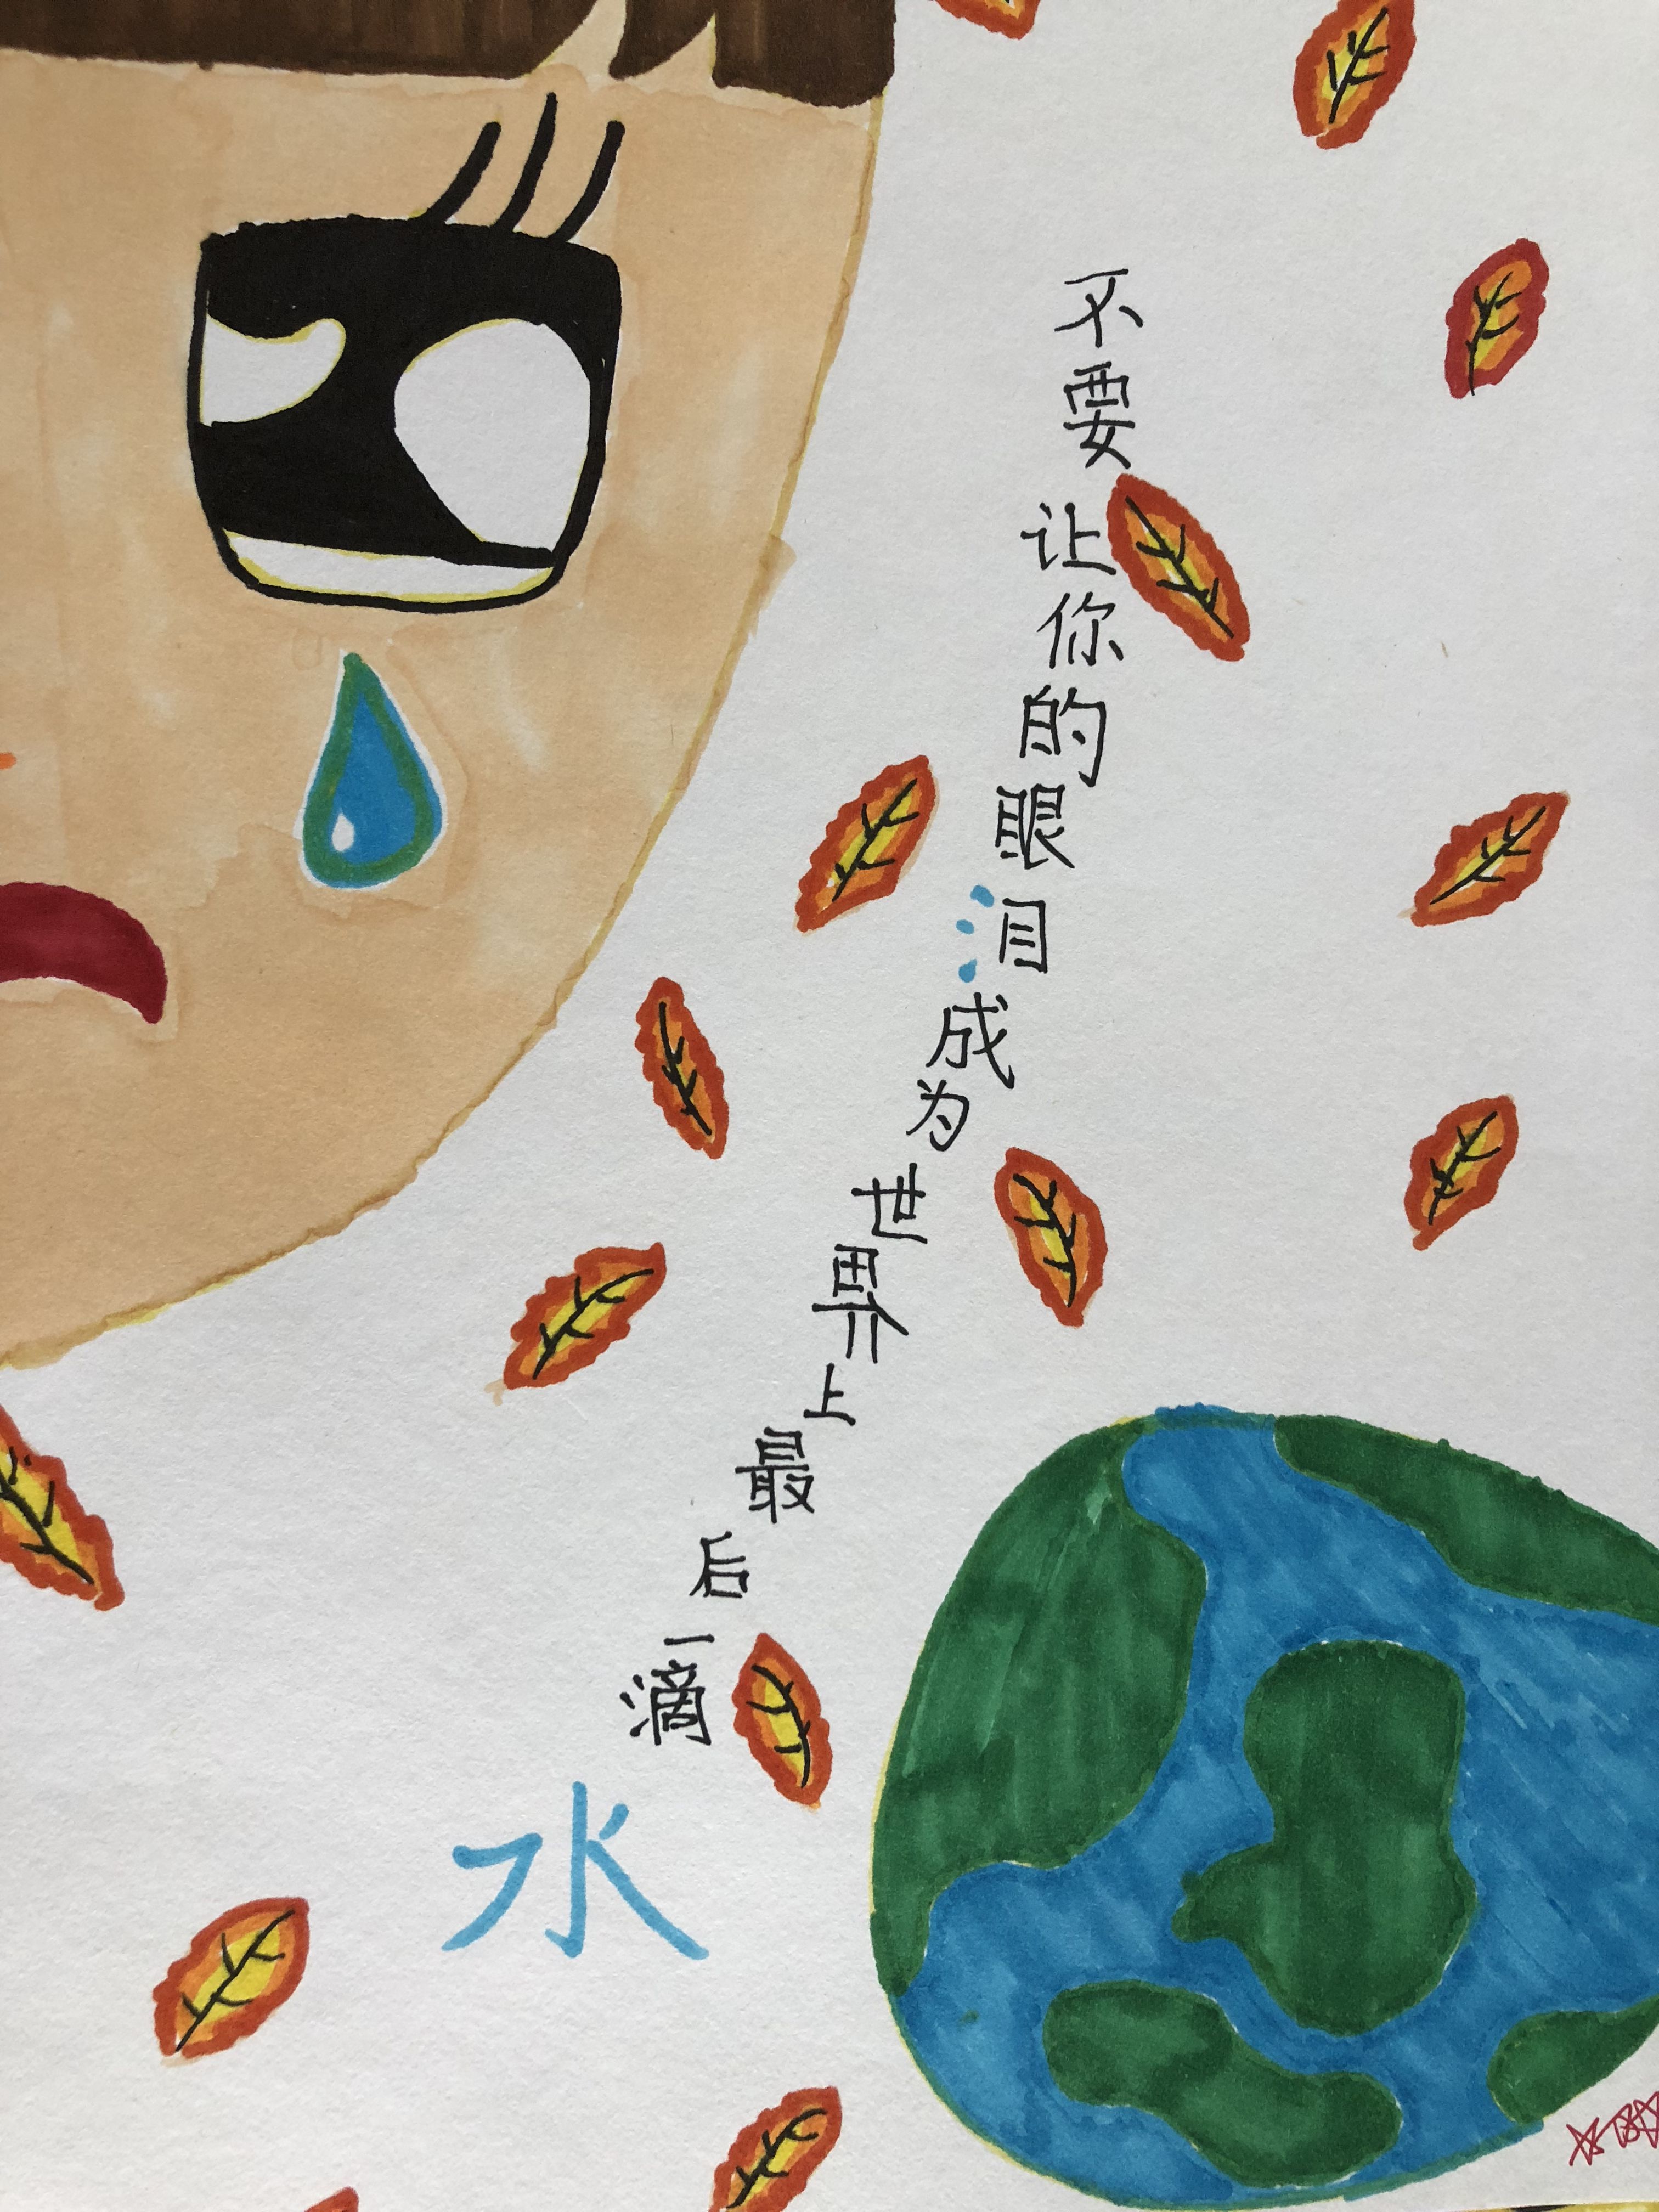 不要让你的眼泪成为世界上最后一滴水